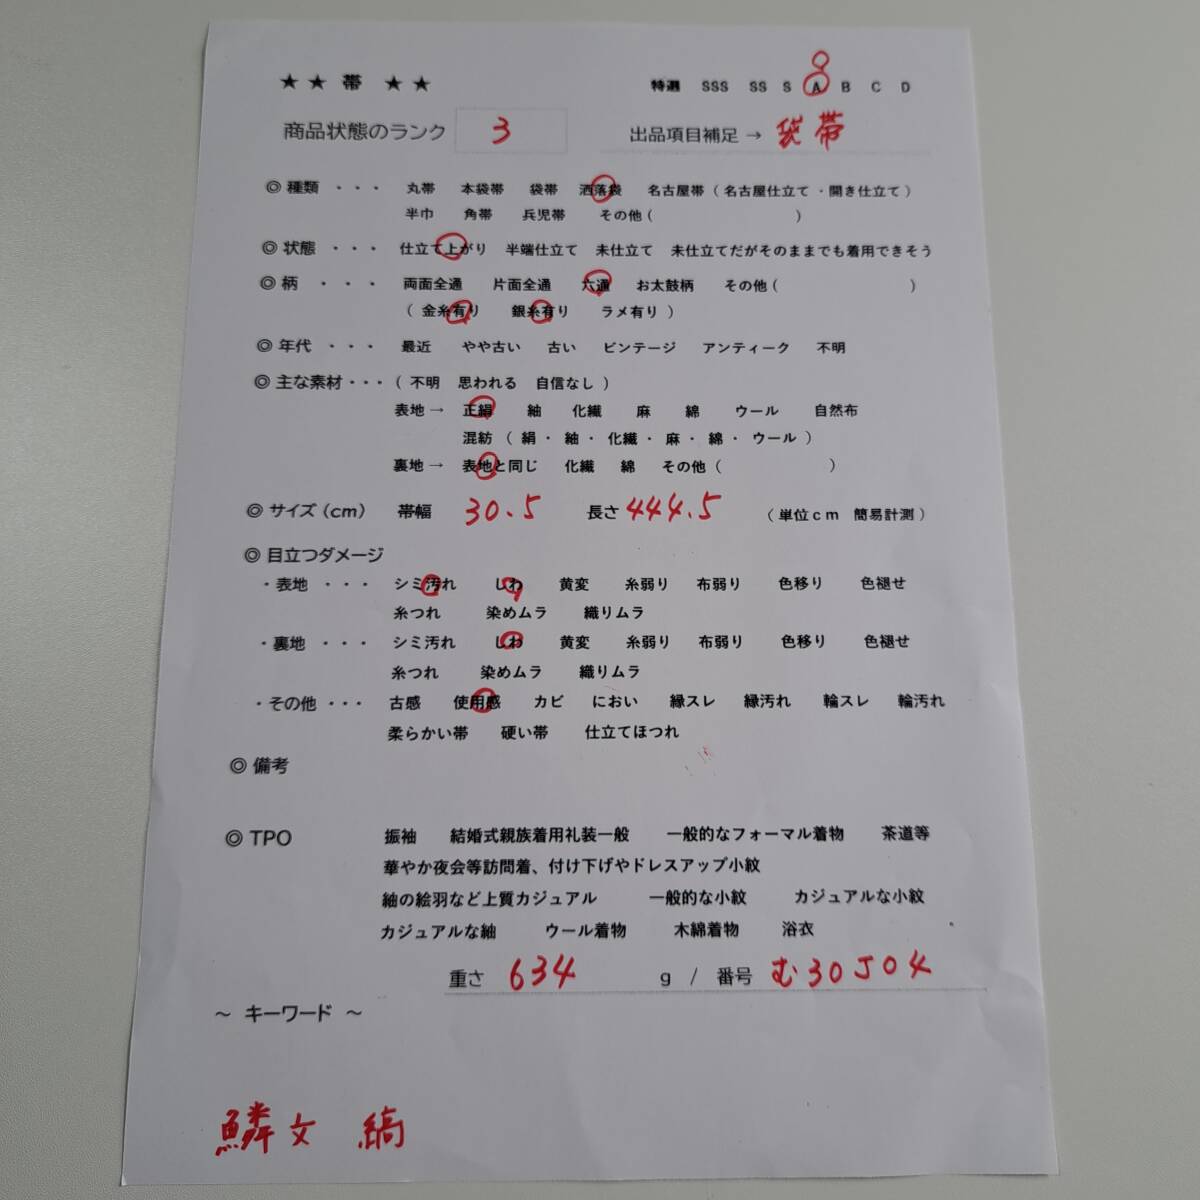 ★★ 帯 ★★ 特選 SSS SS S A B C D
商品状態のランク 3 出品項目補足→ 袋帯
◎ 種類 ・・・ 丸帯 本袋帯 袋帯 洒落袋 名古屋帯 ( 名古屋仕立て ・開き仕立て )
半巾 角帯 兵児帯 その他 ( )
◎ 状態 ・・・ 仕立て上がり 半端仕立て 未仕立て 未仕立てだがそのままでも着用できそう
◎ 柄 ・・・ 両面全通 片面全通 六通 お太鼓柄 その他 ( )
( 金糸有り 銀糸有り ラメ有り )
◎ 年代 ・・・ 最近 やや古い 古い ビンテージ アンティーク 不明
◎ 主な素材・・・ ( 不明 思われる 自信なし )
表地→ 正絹 紬 化繊 麻 綿 ウール 自然布
混紡 ( 絹・紬・化繊・麻・綿・ウール )
裏地→ 表地と同じ 化繊 綿 その他 ( )
◎ サイズ (cm) 帯幅 30.5 長さ 444.5 (単位cm 簡易計測)
◎ 目立つダメージ
・表地 ・・・ シミ汚れ しわ 黄変 糸弱り 布弱り 色移り 色褪せ
糸つれ 染めムラ 織りムラ
・裏地 ・・・ シミ汚れ しわ 黄変 糸弱り 布弱り 色移り 色褪せ
糸つれ 染めムラ 織りムラ
・その他 ・・・ 古感 使用感 カビ におい 縁スレ 縁汚れ 輪スレ 輪汚れ
柔らかい帯 硬い帯 仕立てほつれ
◎ 備考
◎ TPO 振袖 結婚式親族着用礼装一般 一般的なフォーマル着物 茶道等
華やか夜会等訪問着、付け下げやドレスアップ小紋
紬の絵羽など上質カジュアル 一般的な小紋 カジュアルな小紋
カジュアルな紬 ウール着物 木綿着物 浴衣
重さ 634 g / 番号 む30J04
～ キーワード ～
鱗文 縞